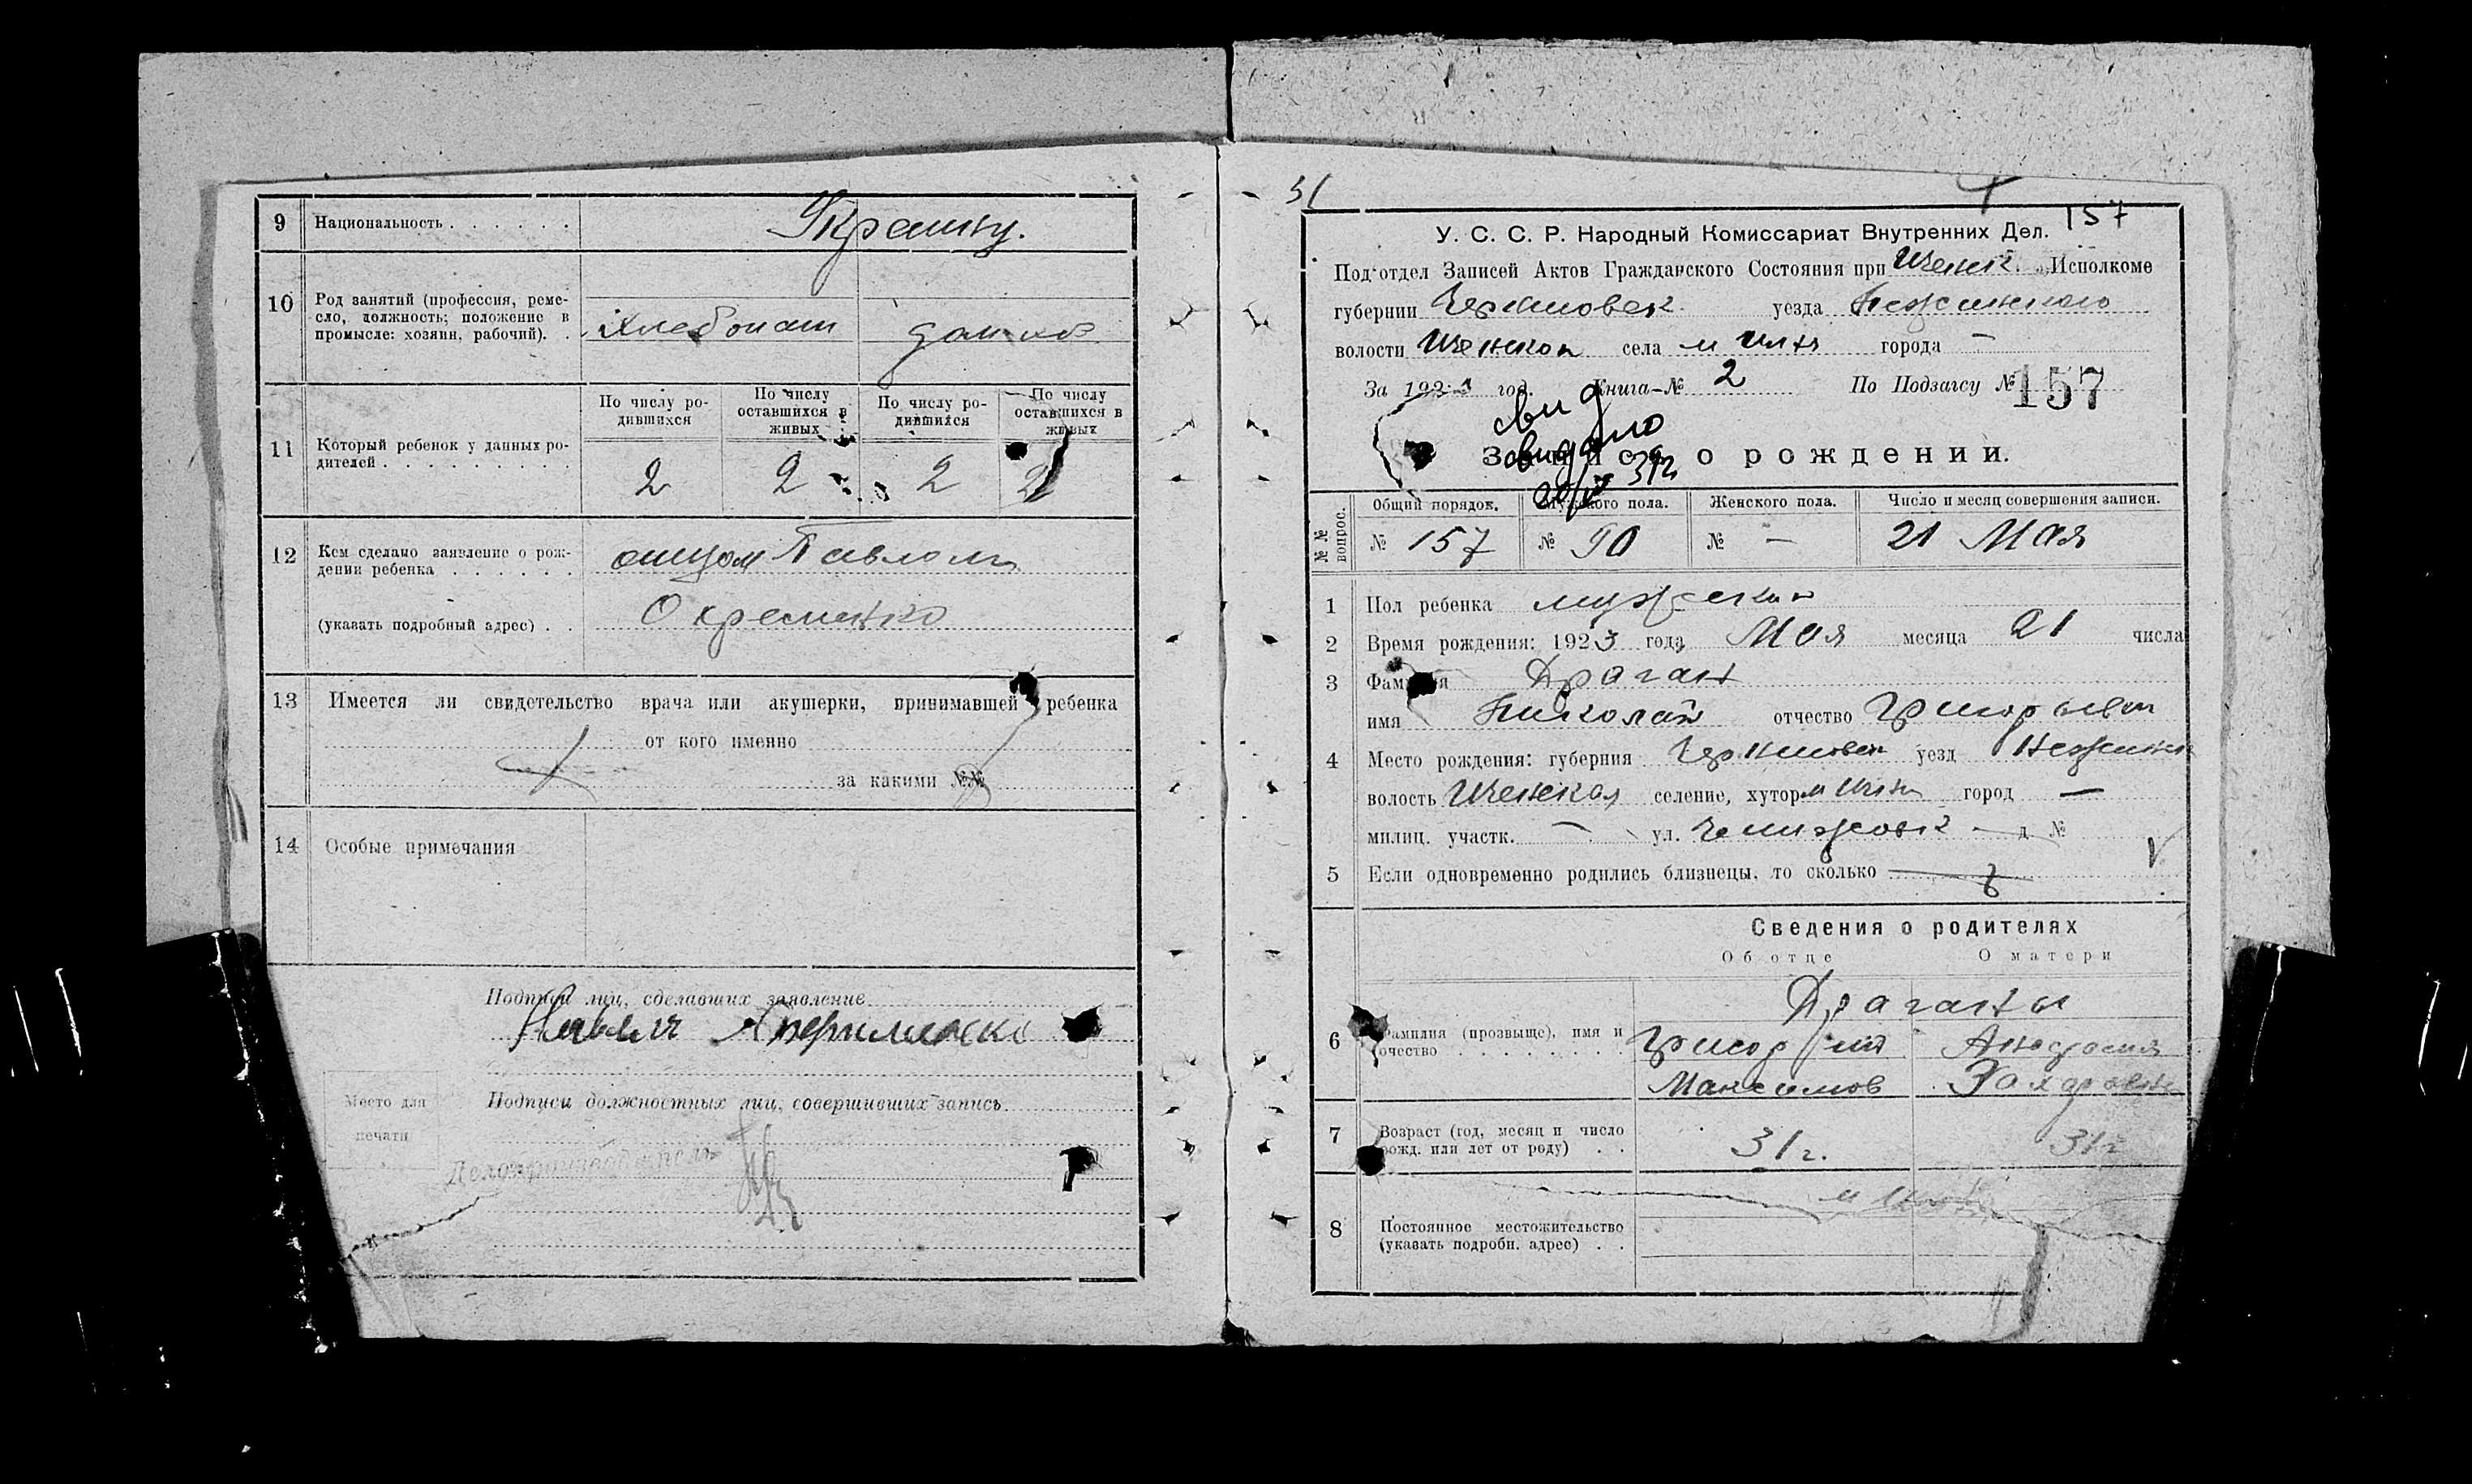 9 Национальность . . . . . . Украинц.
10 Род занятий (профессия, реме-
сло, должность; положение в
промысле: хозяин, рабочий). .
Хлебопаш домхоз.
По числу ро-
дившихся
По числу
оставшихся в
живых
По числу ро-
дившихся
По числу
оставшихся в
живых
11 Который ребенок у данных ро-
дителей . . . . . . . . .
2 2 2 2
12 Кем сделано заявление о рож-
дении ребенка . . . . . .
отцом Павлом
(указать подробный адрес) . .
Охременко
13 Имеется ли свидетельство врача или акушерки, принимавшей ребенка
от кого именно
за какими №№
14 Особые примечания
Подписи лиц, сделавших заявление
Место для
печати
Подписи должностных лиц, совершивших запись
Делопроизводитель
51
157
У. С. С. Р. Народный Комиссариат Внутренних Дел.
Под‘отдел Записей Актов Гражданского Состояния при Иченск. Исполкоме
губернии Черниговск. уезда Нежинского
волости Иченской села м Ичня города —
За 1923 год. Книга-№ 2 По Подзагсу № 157
свид
видано
Запись о рождении.
№№ вопрос.
Общий порядок. Мужского пола. Женского пола. Число и месяц совершения записи.
№ 157 № 90 № — 21 Мая
1 Пол ребенка мужский
2 Время рождения: 1923 года, Мая месяца 21 числа
3 Фамилия Драган
имя Николай отчество Григорьев
4 Место рождения: губерния Черниговск уезд Нежинск
волость Иченская селение, хутор м Ичня город —
милиц. участк. — ул. д №
5 Если одновременно родились близнецы, то сколько
Сведения о родителях
Об отце О матери
Драганы
6 Фамилия (прозвыще), имя и
отчество . . . . . . . . .
Григорий Анастасия
Максимов Захаровна
7 Возраст (год, месяц и число
рожд. или лет от роду) . .
31 г. 31 г
м Ичня
8 Постоянное местожительство
(указать подробн. адрес) . .